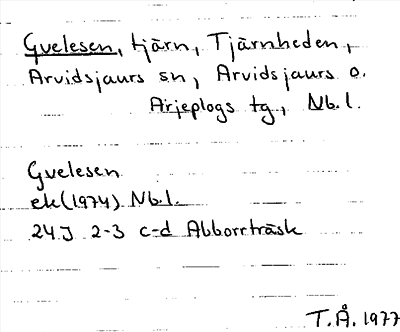 Gvelesen, tjärn, Tjärnheden,
Arvidsjaurs sn, Arvidsjaurs o.
Arjeplogs tg, Nb.l.
Gvelesen
ek(1974) Nb.l.
24J 2-3 c-d Abborrträsk
T.Å. 1977